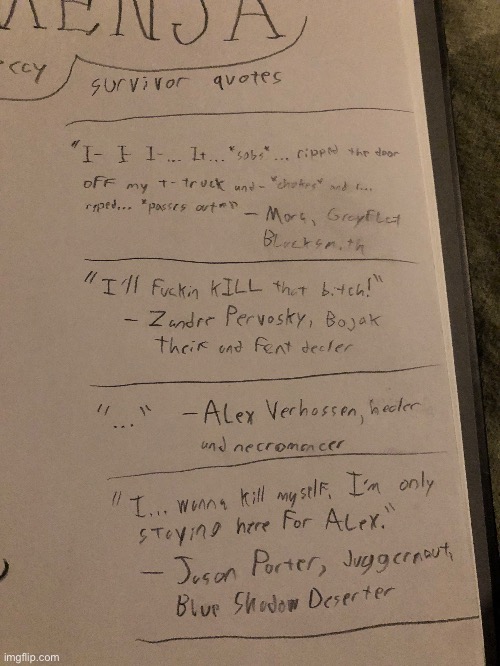 ENJA
ccy
survivor quotes
"I- I- I-... It... *sobs* ... ripped the door
off my t-truck and- *chokes* and r...
raped... *passes out*" - Mora,
Blacksmith
"I'll fuckin KILL that bitch!"
- Zandre Pervosky, Bojak
theif and fent decler
"..." - ALex Verhossen, healer
and necromancer
"I... wanna kill myself. I'm only
staying here for ALex."
- Jason Porter, Juggernaut,
Blue Shadow Deserter
imgflip.com